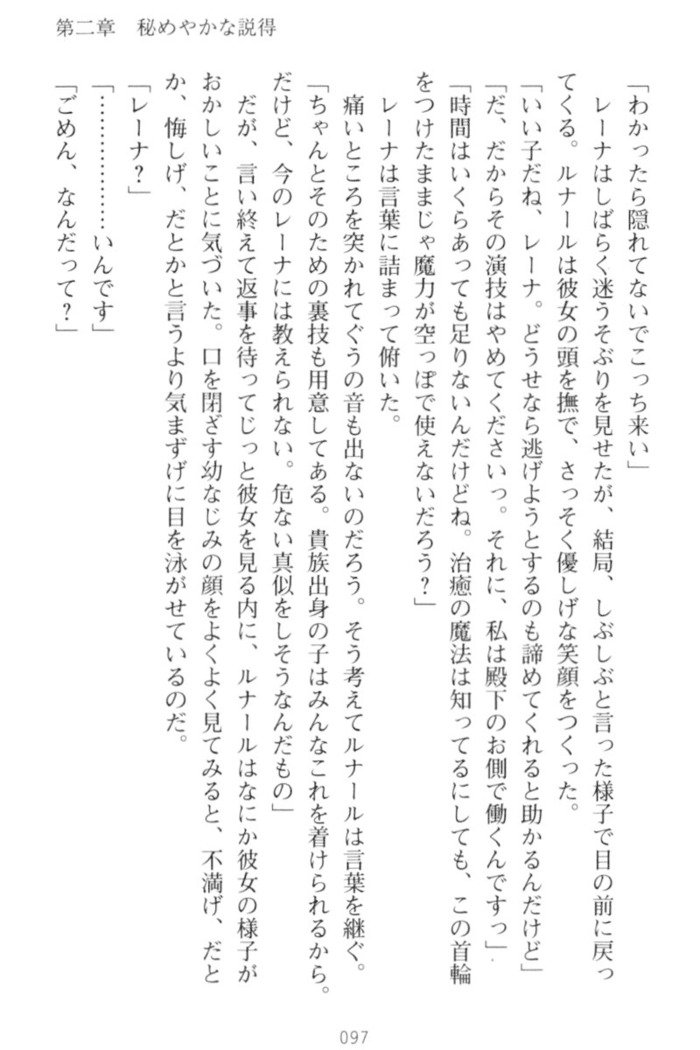 第二章　秘めやかな説得
「わかったら隠れてないでこっち来い」
　レーナはしばらく迷うそぶりを見せたが、結局、しぶしぶと言った様子で目の前に戻っ
てくる。ルナールは彼女の頭を撫で、さっそく優しげな笑顔をつくった。
「いい子だね、レーナ。どうせなら逃げようとするのも諦めてくれると助かるんだけど」
「だ、だからその演技はやめてくださいっ。それに、私は殿下のお側で働くんですっ」
「時間はいくらあっても足りないんだけどね。治癒の魔法は知ってるにしても、この首輪
をつけたままじゃ魔力が空っぽで使えないだろう？」
　レーナは言葉に詰まって俯いた。
　痛いところを突かれてぐうの音も出ないのだろう。そう考えてルナールは言葉を継ぐ。
「ちゃんとそのための裏技も用意してある。貴族出身の子はみんなこれを着けられるから。
だけど、今のレーナには教えられない。危ない真似をしそうなんだもの」
　だが、言い終えて返事を待ってじっと彼女を見る内に、ルナールはなにか彼女の様子が
おかしいことに気づいた。口を閉ざす幼なじみの顔をよくよく見てみると、不満げ、だと
か、悔しげ、だとかと言うより気まずげに目を泳がせているのだ。
「レーナ？」
「………………いんです」
「ごめん、なんだって？」
097